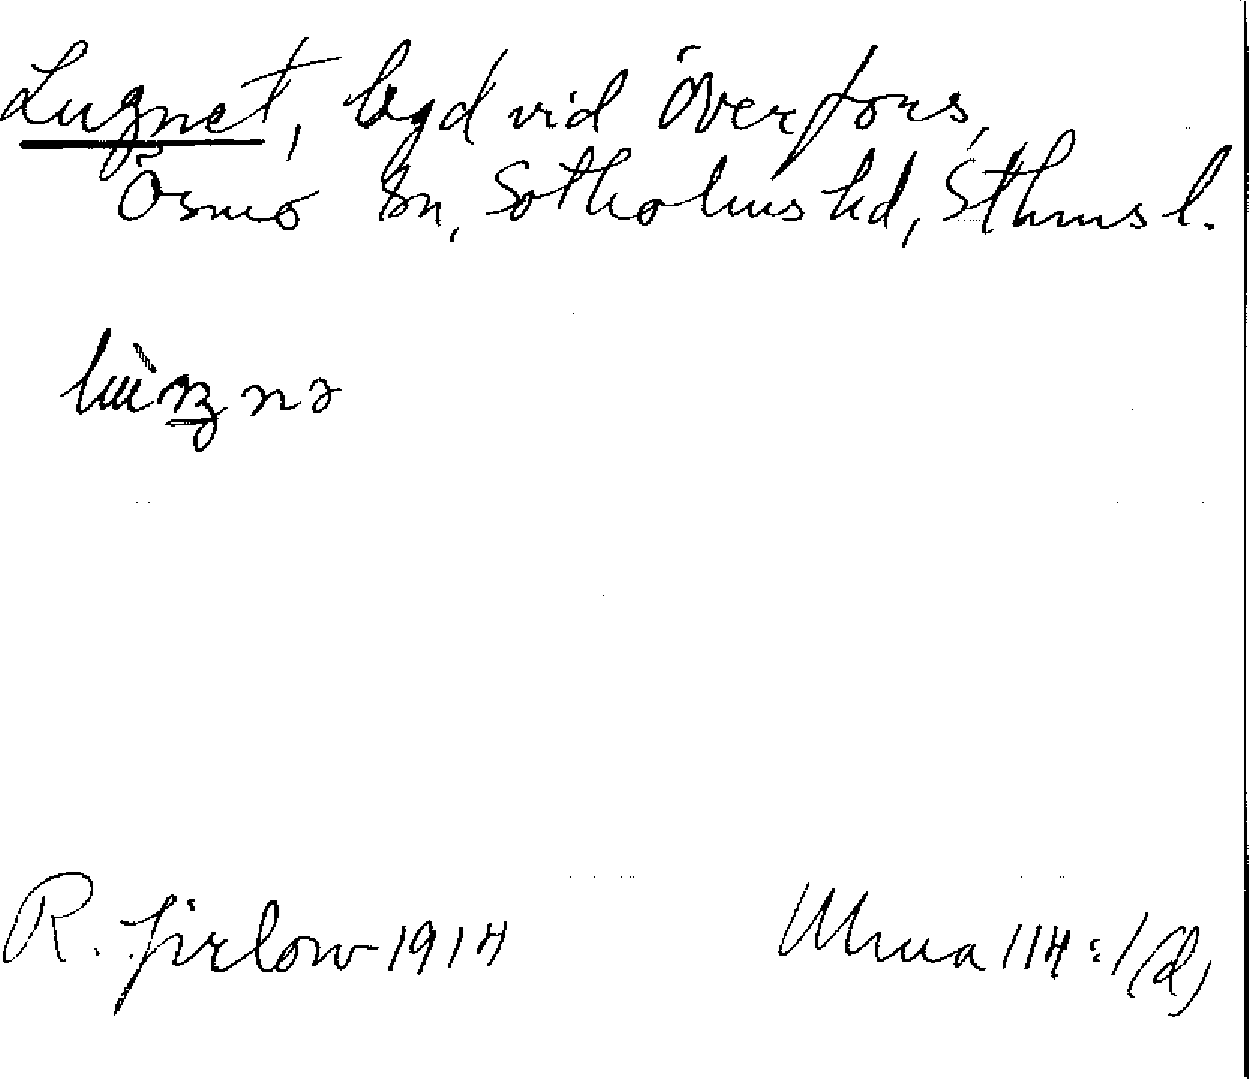 Lugnet, bgd vid Överfors,
Ösmo sn, Sotholms hd, Sthms l.
R. Jirlow 1914
114:1(d)